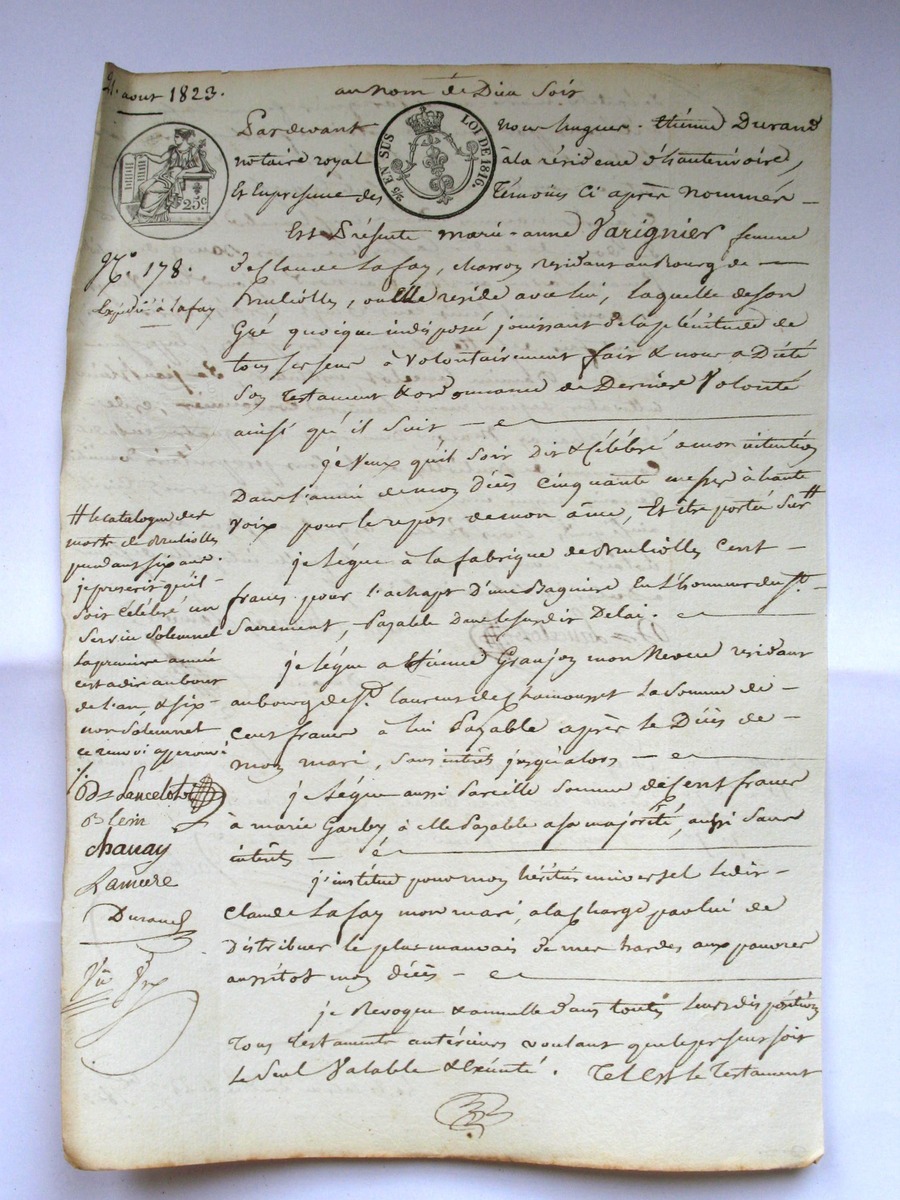 21. aout 1823.
au nom de Dieu soit
Pardevant nous hugues - Etienne Durand
notaire royal à la résidence d'hauterivoire,
Et En presence des Témoins Ci après nommés -
Est Présente marie-anne Varignier femme
de Claude Lafay, charron residant au Bourg de
Brullioles, ou Elle reside avec lui, laquelle de son
Gré quoique indisposée jouissant de la plénitude de
tous ses sens à volontairement fait & nous a Dicté
Son Testament & ordonnance de Derniere Volonté
ainsi qu'il suit -
je Veux qu'il soit Dit & Célébré a mon intention
Dans l'année de mon décès Cinquante messes à haute
Voix pour le repos de mon âme, Et être portée sur #
je Lègue à la fabrique de Brullioles Cent -
francs pour l'achapt d'une Bagniere En l'honneur du St.
Sacrement, Payable Dans le susdit Delai. -
je Lègue a Etienne Granjon mon Neveu residant
au bourg de St. laurent de Chamousset La somme de -
Cent francs à lui Payable après le Décès de -
mon mari, sans intérêts jusqu'alors -
je Lègue aussi Pareille somme de Cent francs
à marie Garby à elle Payable a sa majorité, aussi sans
intérêts -
j'institue pour mon héritier universel Ledit -
Claude Lafay mon mari, a la Charge par lui de
Distribuer le plus mauvais de mes hardes aux pauvres
aussitot mon décès -
je Revoque & annulle dans toutes leurs dispositions
Tous Testaments antérieurs voulant que le présent soit
Le Seul Valable & Exécuté. Tel Est le Testament
25c
2/5 EN SUS
LOI DE 1816.
No. 178.
Expédié à Lafay
# le catalogue des
morts de Brullioles
pendant six ans.
je prescris qu'il -
soit célébré un
Service Solemnel
la premiere année
c'est a dire au bout
de l'an, & six -
non Solemnel
ce renvoi approuvé
Lancelot
Blein
chavay
Lamure
Durand